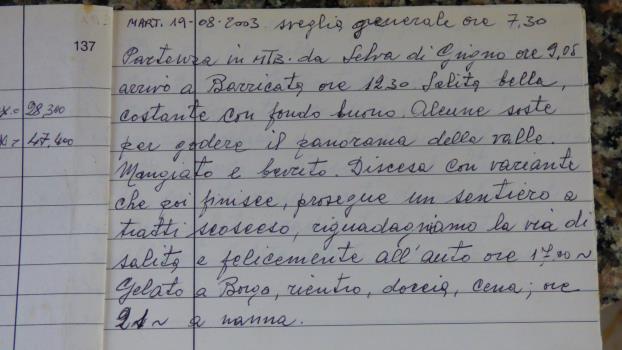 MART. 19-08-2003 sveglia generale ore 7.30
137
Partenza in MTB. da Selva di Grigno ore 9,05
arrivo a Barricata ore 12.30. Salita bella,
98,300
costante con fondo buono. Alcune soste
47.400
per godere il panorama della valle.
Mangiato e bevuto. Discesa con variante
che poi finisce, prosegue un sentiero a
tratti scosceso, riguadagniamo la via di
salita e felicemente all'auto ore 17,00 ~
Gelato a Borgo, rientro, doccia, cena; ore
21 ~ a nanna.